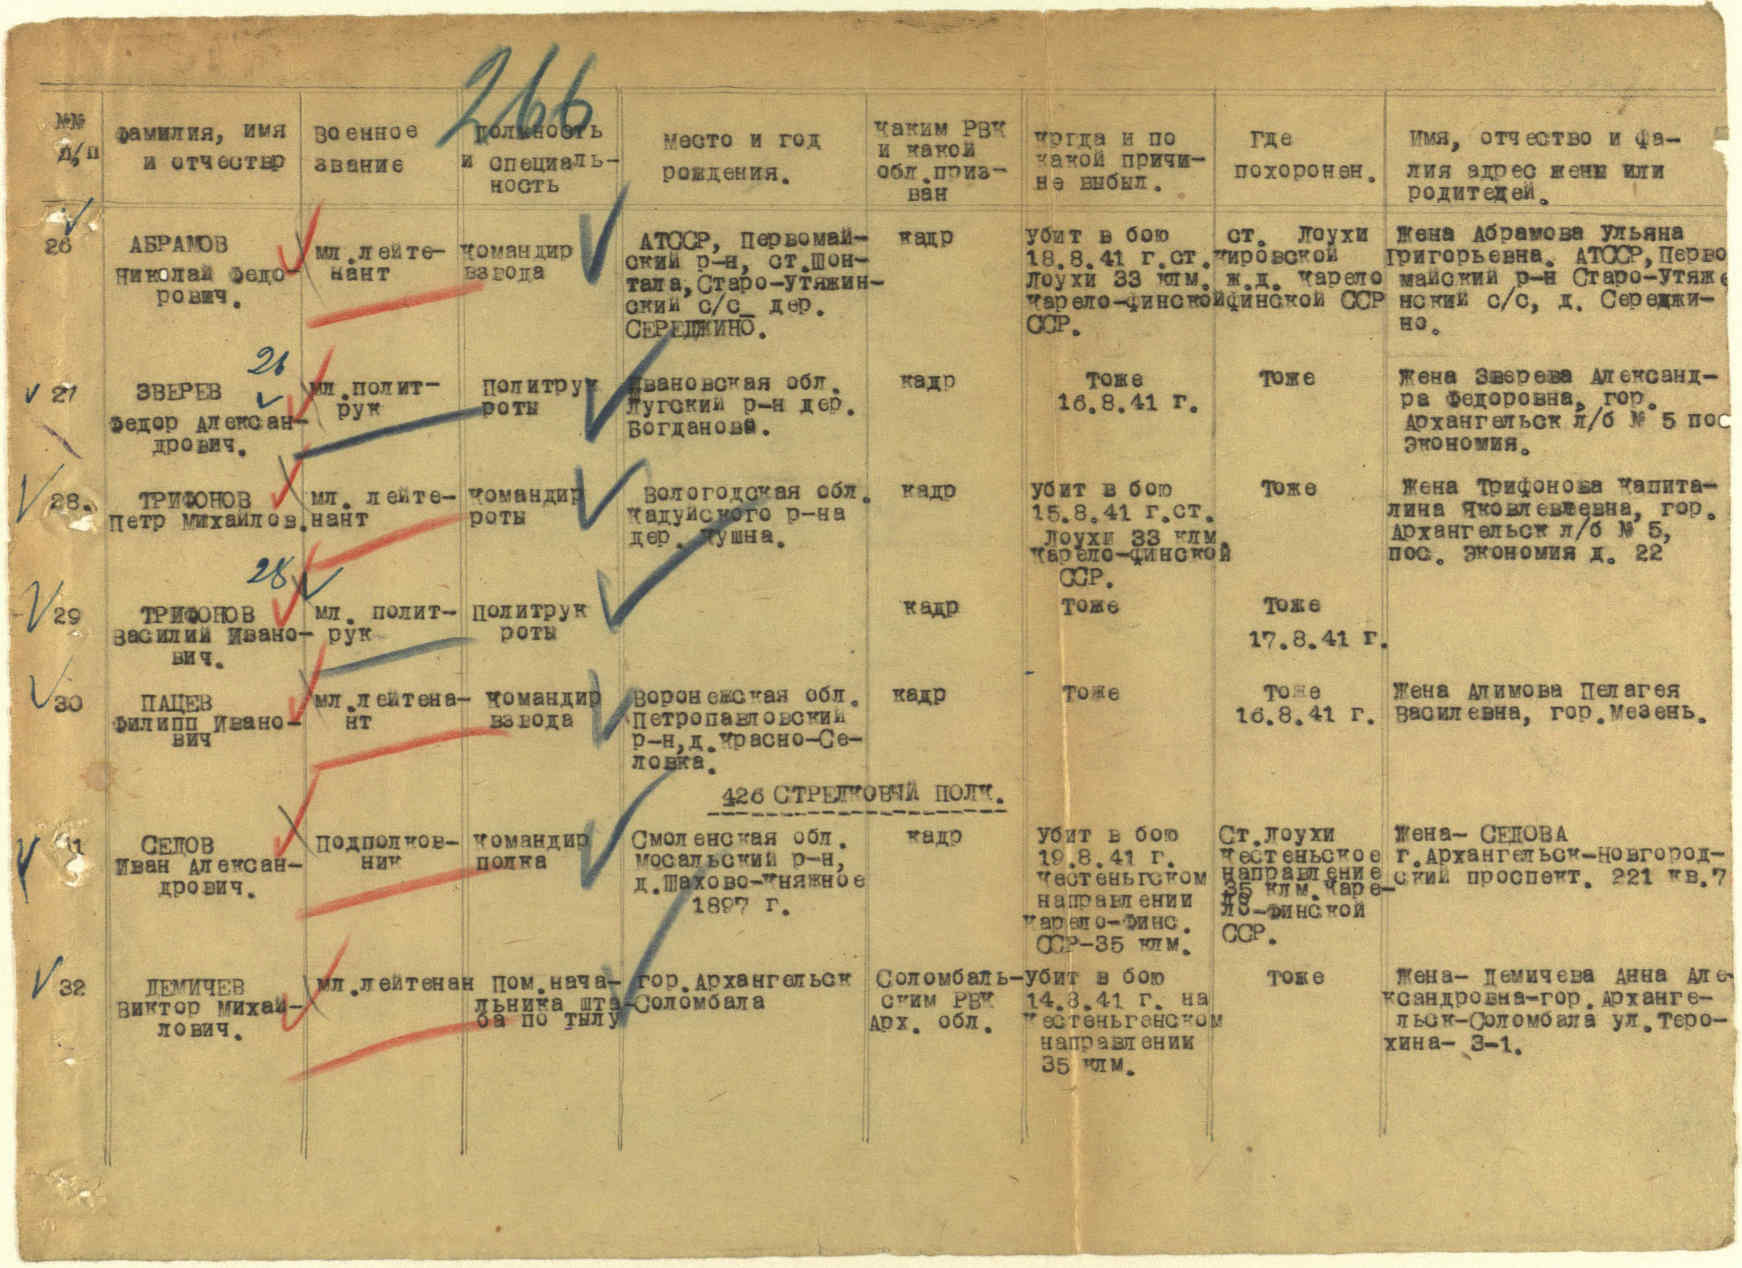 266
№№ п/п
Фамилия, имя и отчество
Военное звание
Должность и специаль-ность
Место и год рождения.
Каким РВК и какой обл.приз-ван
Кргда и по какой причи-не выбыл.
Где похоронен.
Имя, отчество и фа-лия адрес жены или родителей.
26
АБРАМОВ
Николай Федо-
рович.
мл.лейте-
нант
Командир
взвода
АТССР, Первомай-
ский р-н, ст.Шон-
тала,Старо-Утяжин-
ский с/с_ дер.
СЕРЕДЖИНО.
кадр
Убит в бою
18.8.41 г.ст.
Лоухи 33 клм.
Карело-финской
ССР.
ст. Лоухи
Кировской
ж.д. Карело
финской ССР
Жена Абрамова Ульяна
Григорьевна. АТССР,Перво
майский р-н Старо-Утяже
нский с/с, д. Середжи-
но.
26
27
ЗВЕРЕВ
Федор Алексан-
дрович.
мл.полит-
рук
Политрук
роты
Ивановская обл.
Лугский р-н дер.
Богданова.
кадр
Тоже
16.8.41 г.
Тоже
Жена Зверева Александ-
ра Федоровна, гор.
Архангельск л/б № 5 пос
Экономия.
28.
ТРИФОНОВ
Петр Михайлов.
мл. лейте-
нант
Командир
роты
Вологодская обл.
Кадуйского р-на
дер. Лушна.
кадр
Убит в бою
15.8.41 г.ст.
Лоухи 33 клм.
Карело-финской
ССР.
Тоже
Жена Трифонова Капита-
лина Яковлевлевна, гор.
Архангельск л/б № 5,
пос. Экономия д. 22
28
29
ТРИФОНОВ
Василий Ивано-
вич.
мл. полит-
рук
Политрук
роты
кадр
Тоже
Тоже
17.8.41 г.
30
ПАЦЕВ
Филипп Ивано-
вич
мл.лейтена-
нт
Командир
взвода
Воронежская обл.
Петропавловский
р-н,д.Красно-Се-
ловка.
кадр
Тоже
Тоже
16.8.41 г.
Жена Алимова Пелагея
Василевна, гор.Мезень.
426 СТРЕЛКОВЫЙ ПОЛК.
СЕДОВ
Иван Алексан-
дрович.
Подполков-
ник
Командир
полка
Смоленская обл.
Мосальский р-н,
д.Шахово-Княжное
1897 г.
кадр
Убит в бою
19.8.41 г.
Кестеньгском
направлении
Карело-Финс.
ССР-35 клм.
Ст.Лоухи
Кестеньское
направление
35 клм.Каре-
ло-Финской
ССР.
Жена- СЕДОВА
г.Архангельск-Новгород-
ский проспект. 221 кв.7
32
ДЕМИЧЕВ
Виктор Михай-
лович.
мл.лейтенан
Пом.нача-
льника шта-
ба по тылу
гор.Архангельск
Соломбала
Соломбаль-
ским РВК
Арх. обл.
Убит в бою
14.8.41 г. на
Кестеньгенском
направлении
35 клм.
Тоже
Жена- Демичева Анна Але-
ксандровна-гор.Арханге-
льск-Соломбала ул.Теро-
хина- 3-1.